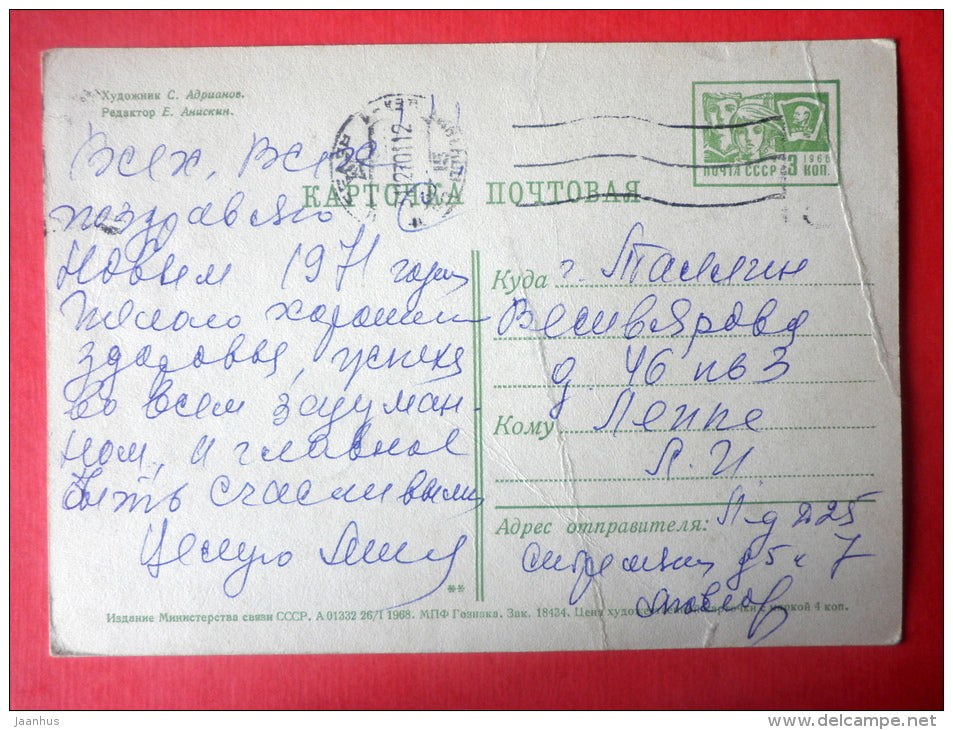 Художник С. Адрианов.
Редактор Е. Анискин.
КАРТОЧКА ПОЧТОВАЯ
ПОЧТА СССР 3 КОП.
1966
Всех, всех
поздравляю
Новым 1971 годом
Желаю хорошего
здоровья, успеха
во всем задуман-
ном, и главное
быть счастливыми
Целую
Куда г. Таллин
д. 46 кв 3
Кому Леппе
Л. И.
Адрес отправителя: Л-д
д 5 к 7
**
Издание Министерства связи СССР. А 01332 26/I 1968. МПФ Гознака. Зак. 18434. Цена художественной карточки с маркой 4 коп.
Jaanhus
www.delcampe.net